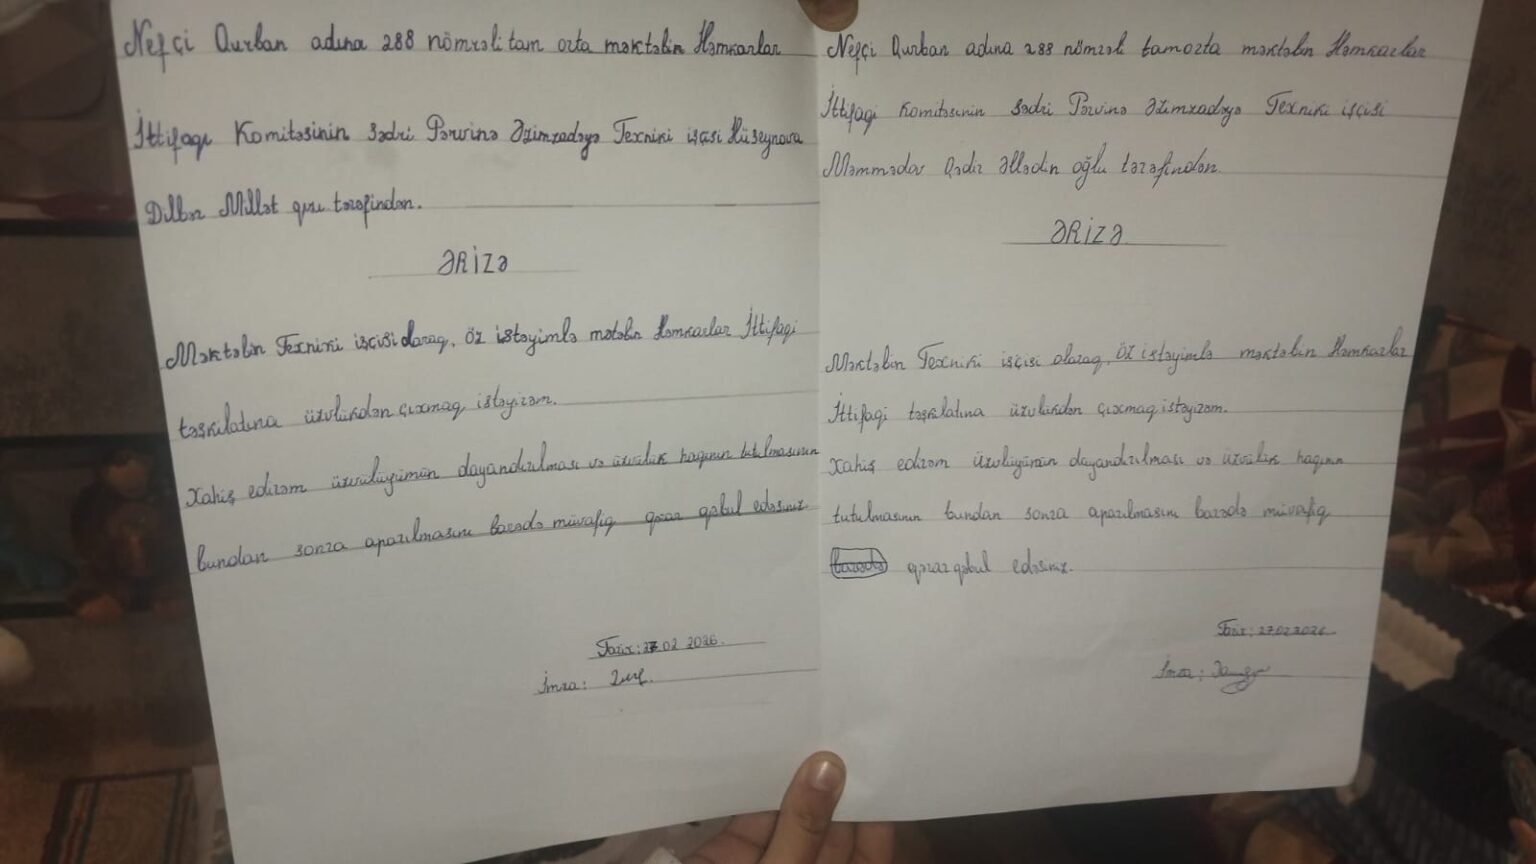 Nefçi Qurban adına 288 nömrəli tam orta məktəbin Həmkarlar
İttifaqı Komitəsinin sədri Pərvinə Əzimzadəyə Texniki işçisi Hüseynova
Dilbər Millət qızı tərəfindən.
ƏRİZƏ
Məktəbin Texniki işçisi olaraq, öz istəyimlə mətəbin Həmkarlar İttifaqi
təşkilatına üzvlükdən çıxmaq istəyizəm.
Xahiş edirəm üzvülüyümün dayandırılması və üzvlük haqqının tutulmasının
bundan sonra aparılmasını barədə müvafiq qərar qəbul edəsiniz.
Tarix: 27.02 2026.
İmza:
Nefçi Qurban adına 288 nömrəli tamorta məktəbin Həmkarlar
İttifaqi Komitəsinin Sədri Pərvinə Əzimzadəyə Texniki işçisi
Məmmədov Qədir Əlləddin oğlu tərəfindən.
ƏRİZƏ
Məktəbin Texniki işçisi olaraq, öz istəyimlə məktəbin Həmkarlar
İttifaqi təşkilatına üzvlükdən çıxmaq istəyizəm.
Xahiş edirəm üzvlüyümün dayandırılması və üzvlük haqının
tutulmasının bundan sonra aparılmasını barədə müvafiq
qərar qəbul edəsiniz.
Tarix: 27.02.2026.
İmza: